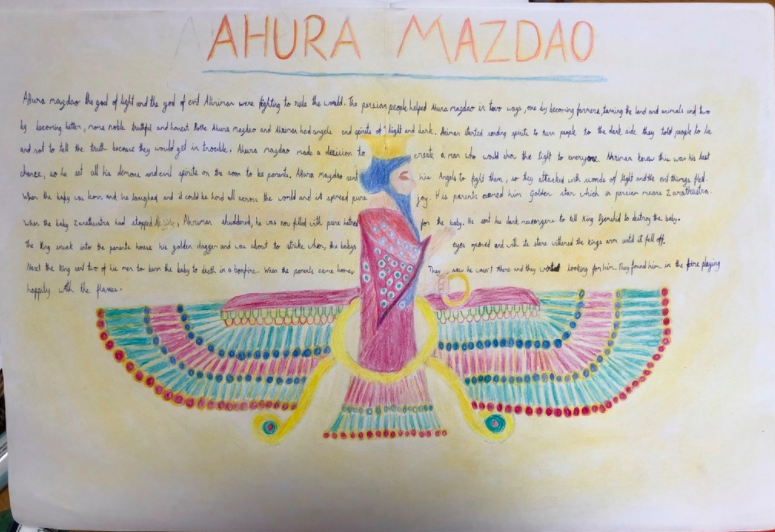 AHURA MAZDAO
Ahura mazdao the god of light and the god of evil Ahriman were fighting to rule the world. The persian people helped Ahura mazdao in two ways, one by becoming farmers, taming the land and animals and two
by becoming better, more noble truthful and honest. Both Ahura Mazdao and Ahriman had angels and spirits of light and dark. Ahriman started sending spirits to turn people to the dark side they told people to lie
and not to tell the truth because they would get in trouble. Ahura mazdao made a decision to create a man who would show the light to everyone. Ahriman knew this was his last
chance, so he set all his demons and evil spirits on the soon to be parents. Ahura Mazdao sent his Angels to fight them, so they attacked with swords of light and the evil things fled.
When the baby was born, and he laughed and it could be heard all across the world and it spread pure joy. His parents named him Golden star which in persian means Zarathustra.
When the baby Zarathustra had stopped Ahriman shuddered, he was now filled with pure hatred for the baby. He sent his dark messengers to tell King to destroy the baby.
The King snuck into the parents house his golden dagger and was about to strike when, the babys eyes opened and with its stare withered the kings arm until it fell off.
Next the King sent two of his men to burn the baby to death in a bonfire. When the parents came home, They saw he wasn't there and they looking for him. They found him in the fire playing
happily with the flames.